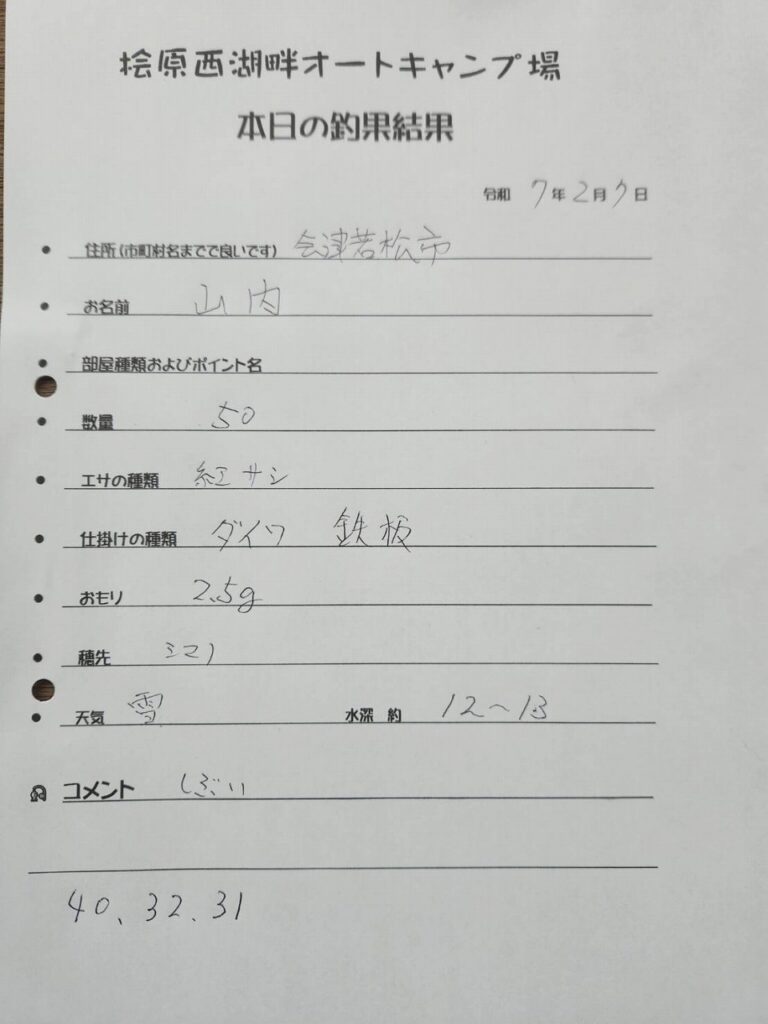 桧原西湖畔オートキャンプ場
本日の釣果結果
令和 7年2月7日
住所(市町村名までで良いです) 会津若松市
お名前 山内
部屋種類およびポイント名
数量 50
エサの種類 紅サシ
仕掛けの種類 ダイワ 鉄板
おもり 2.5g
穂先 シマノ
天気 雪 水深 約 12〜13
コメント しぶい
40、32、31